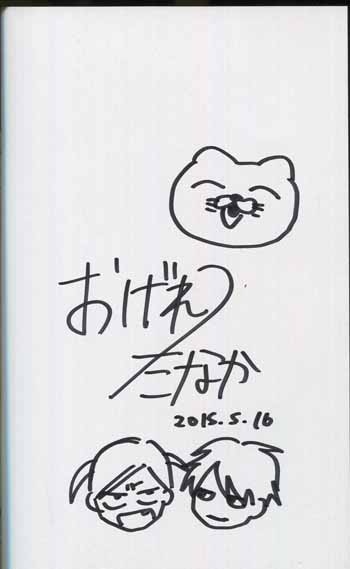 おげれつ
たなか
2015.5.16